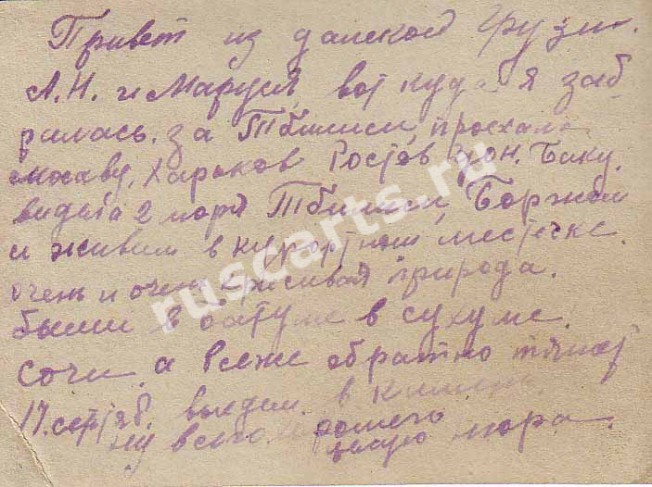 Привет из далекой Грузи
А.Н. и Маруся, вот куда я заб
ралась. за Тбилиси, проехали
москву, Харьков Ростов дон. Баку.
видела 2 моря Тбилиси, Боржом
и живим в курортном местечке.
очень и очень красивая природа.
были в батуме в сухуме.
сочи. а все же обратно тянет
17. сентяб. выедем. в
ну всего хорошего
целую нюра.
ruscarts.ru